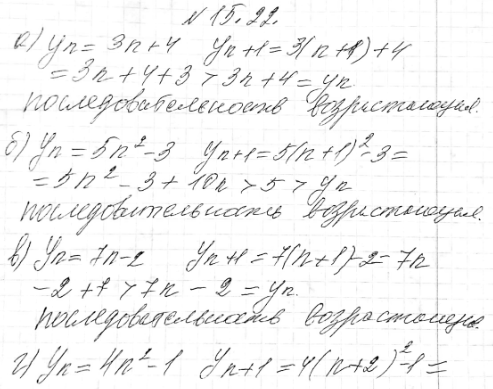 № 15.22.
а) yn = 3n+4 yn+1 = 3(n+1)+4
= 3n+4+3 > 3n+4 = yn
последовательность возрастающая.
б) yn = 5n²-3 yn+1 = 5(n+1)²-3 =
= 5n²-3+10n > 5 > yn
последовательность возрастающая.
в) yn = 7n-2 yn+1 = 7(n+1)-2 = 7n
-2+7 > 7n-2 = yn.
последовательность возрастающая.
г) yn = 4n²-1 yn+1 = 4(n+2)²-1 =